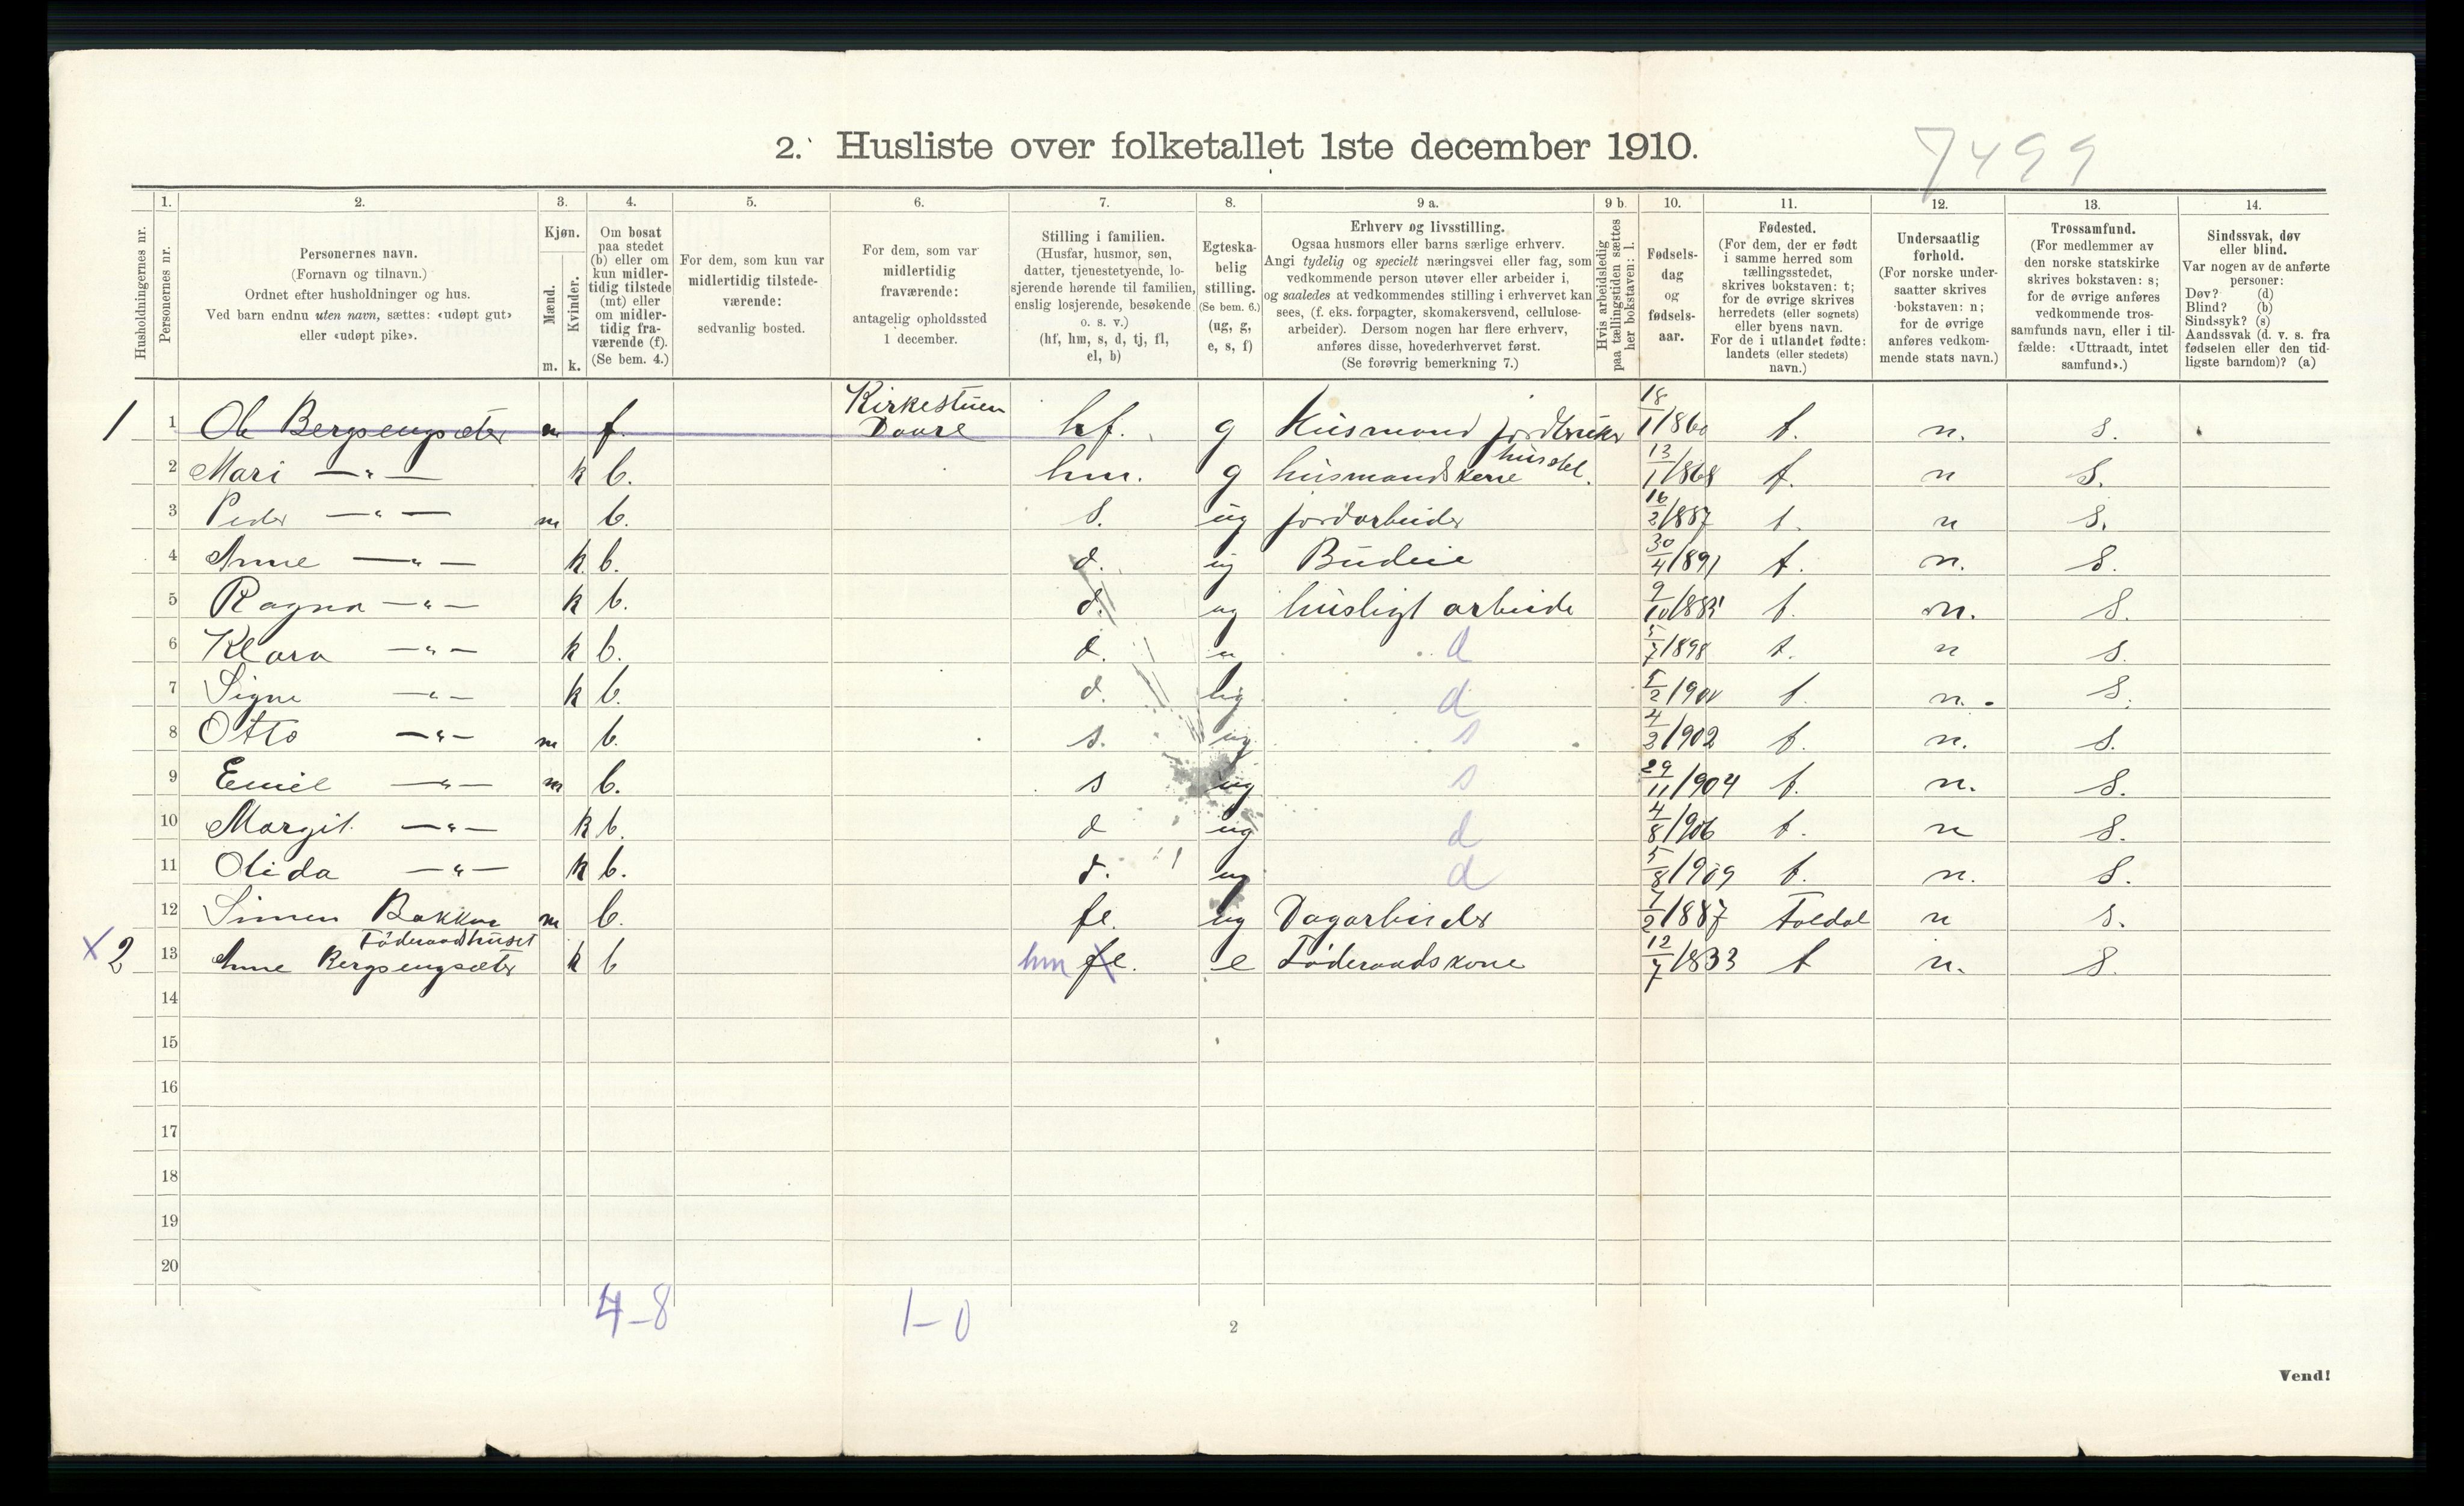 7499
2. Husliste over folketallet 1ste december 1910.
Husholdningernes nr.
1.
Personernes nr.
2.
Personernes navn.
(Fornavn og tilnavn.)
Ordnet efter husholdninger og hus.
Ved barn endnu uten navn, sættes: «udøpt gut»
eller «udøpt pike».
3.
Kjøn.
Mænd.
Kvinder.
m. k.
4.
Om bosat
paa stedet
(b) eller om
kun midler-
tidig tilstede
(mt) eller
om midler-
tidig fra-
værende (f).
(Se bem. 4.)
5.
For dem, som kun var
midlertidig tilstede-
værende:
sedvanlig bosted.
6.
For dem, som var
midlertidig
fraværende:
antagelig opholdssted
1 december.
7.
Stilling i familien.
(Husfar, husmor, søn,
datter, tjenestetyende, lo-
sjerende hørende til familien,
enslig losjerende, besøkende
o. s. v.)
(hf, hm, s, d, tj, fl,
el, b)
8.
Egteska-
belig
stilling.
(Se bem. 6.)
(ug, g,
e, s, f)
9 a.
Erhverv og livsstilling.
Ogsaa husmors eller barns særlige erhverv.
Angi tydelig og specielt næringsvei eller fag, som
vedkommende person utøver eller arbeider i,
og saaledes at vedkommendes stilling i erhvervet kan
sees, (f. eks. forpagter, skomakersvend, cellulose-
arbeider). Dersom nogen har flere erhverv,
anføres disse, hovederhvervet først.
(Se forøvrig bemerkning 7.)
9 b.
Hvis arbeidsledig
paa tællingstiden sættes
her bokstaven: l.
10.
Fødsels-
dag
og
fødsels-
aar.
11.
Fødested.
(For dem, der er født
i samme herred som
tællingsstedet,
skrives bokstaven: t;
for de øvrige skrives
herredets (eller sognets)
eller byens navn.
For de i utlandet fødte:
landets (eller stedets)
navn.)
12.
Undersaatlig
forhold.
(For norske under-
saatter skrives
bokstaven: n;
for de øvrige
anføres vedkom-
mende stats navn.)
13.
Trossamfund.
(For medlemmer av
den norske statskirke
skrives bokstaven: s;
for de øvrige anføres
vedkommende tros-
samfunds navn, eller i til-
fælde: «Uttraadt, intet
samfund».)
14.
Sindssvak, døv
eller blind.
Var nogen av de anførte
personer:
Døv? (d)
Blind? (b)
Sindssyk? (s)
Aandssvak (d. v. s. fra
fødselen eller den tid-
ligste barndom)? (a)
Kirkestuen
1 1 Ole Bergsengsæter m f. Dovre hf. g Husmand jordbruker 18/1 1860 t. n. s.
2 Mari —"— k b. hm. g husmandskone husstel. 13/1 1868 t. n s.
3 Peder —"— m b. s. ug jordarbeider 16/2 1887 t. n s.
4 Anne —"— k. b. d. ug Budeie 30/4 1891 t. n. s.
5 Ragna —"— k b. d. ug husligt arbeide 9/10 t. n. s.
6 Klara —"— k b. d. d 7 1898 t. n s.
7 Signe —"— k b. d. ug d 5/2 t. n. s.
8 Otto —"— m b. s. ug s 4/2 1902 t. n. s.
9 Emil —"— m b. s ug s 29/11 1904 t. n. s.
10 Margit —"— k b. d ug d 4/8 1906 t. n s.
11 Olida —"— k b. d. ug d 5/8 1909 t. n. s.
12 Simen Bakken m b. fl. ug Dagarbeider 7/2 1887 Foldal n s.
Föderaadhuset
x 2 13 Anne Bergsengsæter k b hm fl. e Föderaadskone 12/7 1833 t n. s.
14
15
16
17
18
19
20
4–8
1–0
2
Vend!